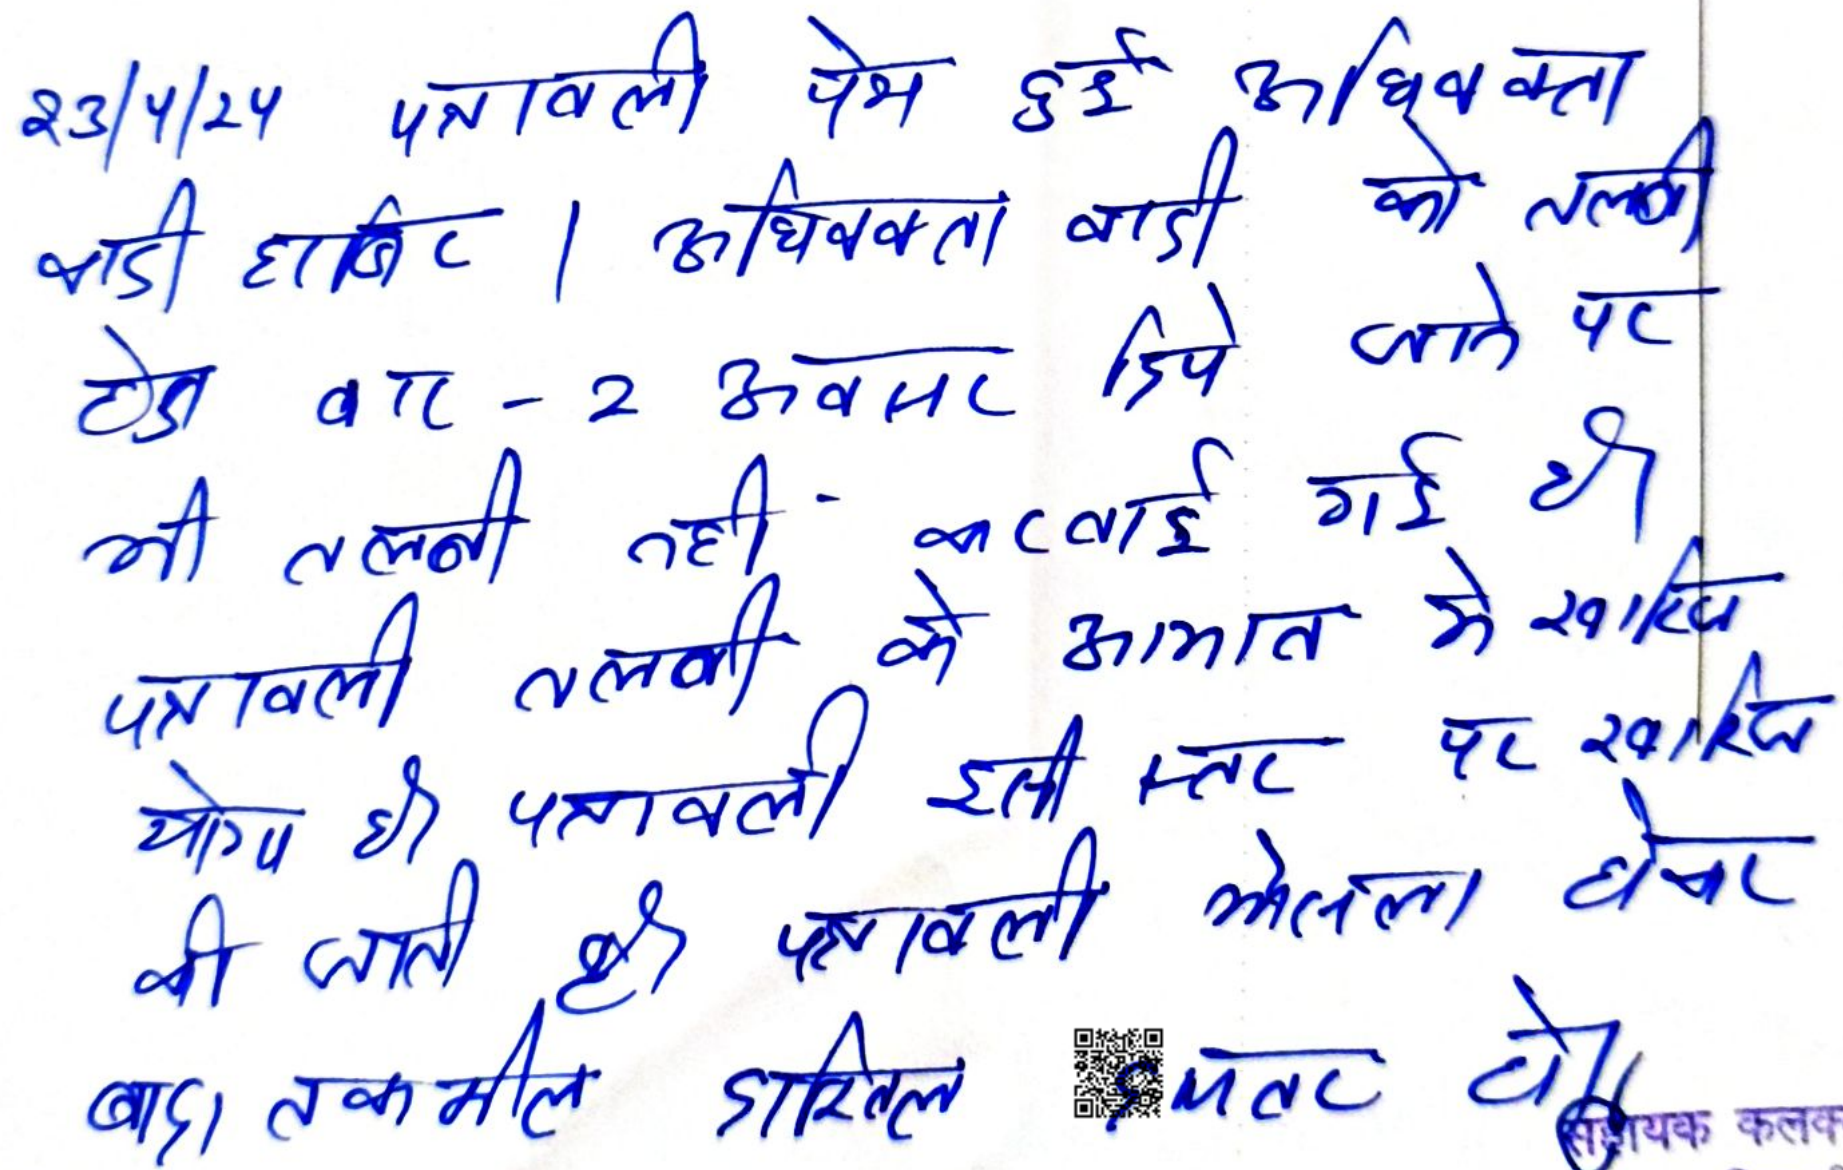 23/4/24 पत्रावली पेश हुई अधिवक्ता
वादी हाजिर । अधिवक्ता वादी को तलबी
हेतु बार-2 अवसर दिये जाने पर
भी तलबी नहीं करवाई गई है।
पत्रावली तलबी के अभाव में खारिज
योग्य है। पत्रावली इसी स्तर पर खारिज
की जाती है। पत्रावली फैसला होकर
बाद तकमील दाखिल दफ्तर हो।
सहायक कलक